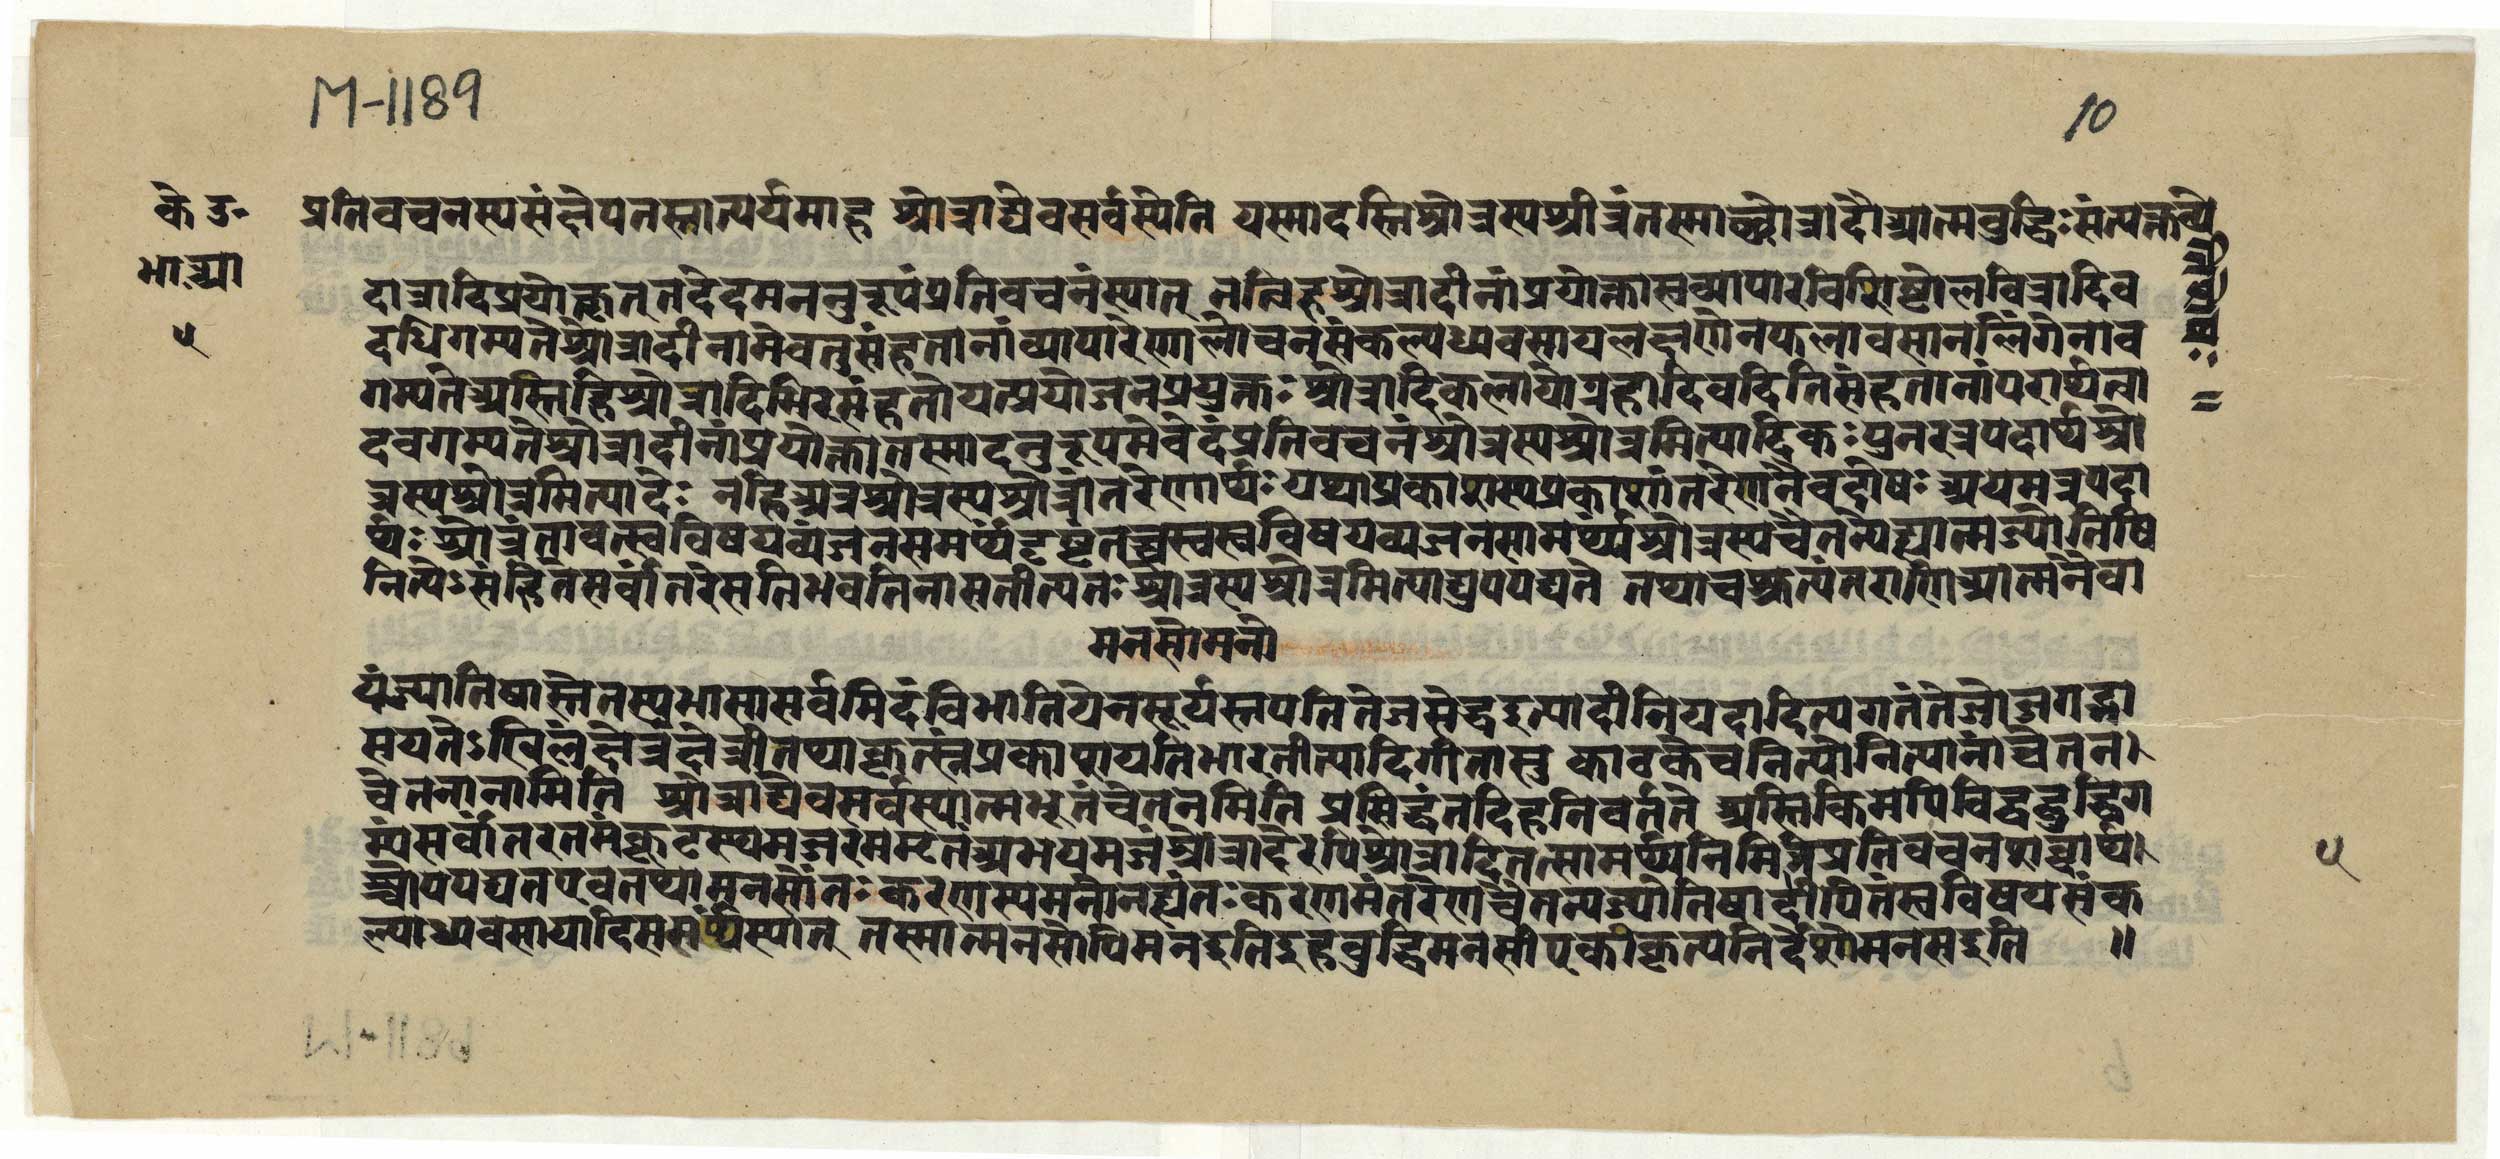 M-1189
10
के उ॰
भा॰ आ
५
प्रतिवचनस्यसंक्षेपतस्तात्पर्यमाह श्रोत्राद्येवसर्वस्येति यस्मादस्तिश्रोत्रस्यश्रोत्रंतस्माच्छ्रोत्रादौआत्मबुद्धिः संत्यक्तव्ये
दात्रादिप्रयोक्तृतत्तदेदमननुरूपंप्रतिवचनंस्यात् नत्विहश्रोत्रादीनांप्रयोक्तास्वव्यापारविशिष्टोलवित्रादिव
दधिगम्यतेश्रोत्रादीनामेवतुसंहतानांव्यापारेणालोचनसंकल्पध्यवसायलक्षणेनफलावसानलिंगेनाव
गम्यतेअस्तिहिश्रोत्रादिभिरसंहतोयत्प्रयोजनप्रयुक्तः श्रोत्रादिकलापोगृहादिवदितिसंहतानांपरार्थत्वा
दवगम्यतेश्रोत्रादीनांप्रयोक्तातस्मादनुरूपमेवेदंप्रतिवचनंश्रोत्रस्यश्रोत्रमित्यादिकः पुनरत्रपदार्थश्रो
त्रस्यश्रोत्रमित्यादेः नहिअत्रश्रोत्रस्यश्रोत्रांतरेणार्थः यथाप्रकाशस्यप्रकाशांतरेणनैवदोषः अयमत्रपदा
र्थः श्रोत्रंतावत्स्वविषयव्यंजनसमर्थंदृष्टंतच्चस्वस्वविषयव्यजनसामर्थ्यंश्रोत्रस्यचैतन्यह्यात्मज्योतिषि
नित्येऽसंहितसर्वांतरेसतिभवतिनासतीत्यतः श्रोत्रस्यश्रोत्रमित्याद्युपपद्यते तथाचश्रुत्यंतराणिआत्मनैवा
मनसोमनो
यंज्योतिषास्तेतस्यभासासर्वमिदंविभातियेनसूर्यस्तपतितेजसेद्धइत्यादीनियदादित्यगतंतेजोजगद्भा
सयतेऽखिलंक्षेत्रंक्षेत्रीतथाकृत्स्नंप्रकाशयतिभारतीत्यादिगीतासु काठकेचनित्योनित्यानांचेतन।
चेतनानामिति श्रोत्राद्येवसर्वस्यात्मभूतंचेतनमिति प्रसिद्धंतदिहनिवर्तते अस्तिकिमपिविद्वद्बुद्धिग
म्यंसर्वांतरतमंकूटस्थमजरममृतंअभयमजंश्रोत्रादेरपिश्रोत्रादितत्सामर्थ्यनिमित्तंप्रतिवचनशब्दार्थ।
श्चोपपद्यतएवतथामनसोंतः करणस्यमनोनह्यंतः करणमंतरेणचैतन्यज्योतिषादीपितंस्वविषयसंक
ल्पाध्यवसायादिससर्थंस्यात् तस्मान्मनसोपिमनइतिइहबुद्धिमनसीएकीकृत्यनिर्देशोमनसइति ॥
५